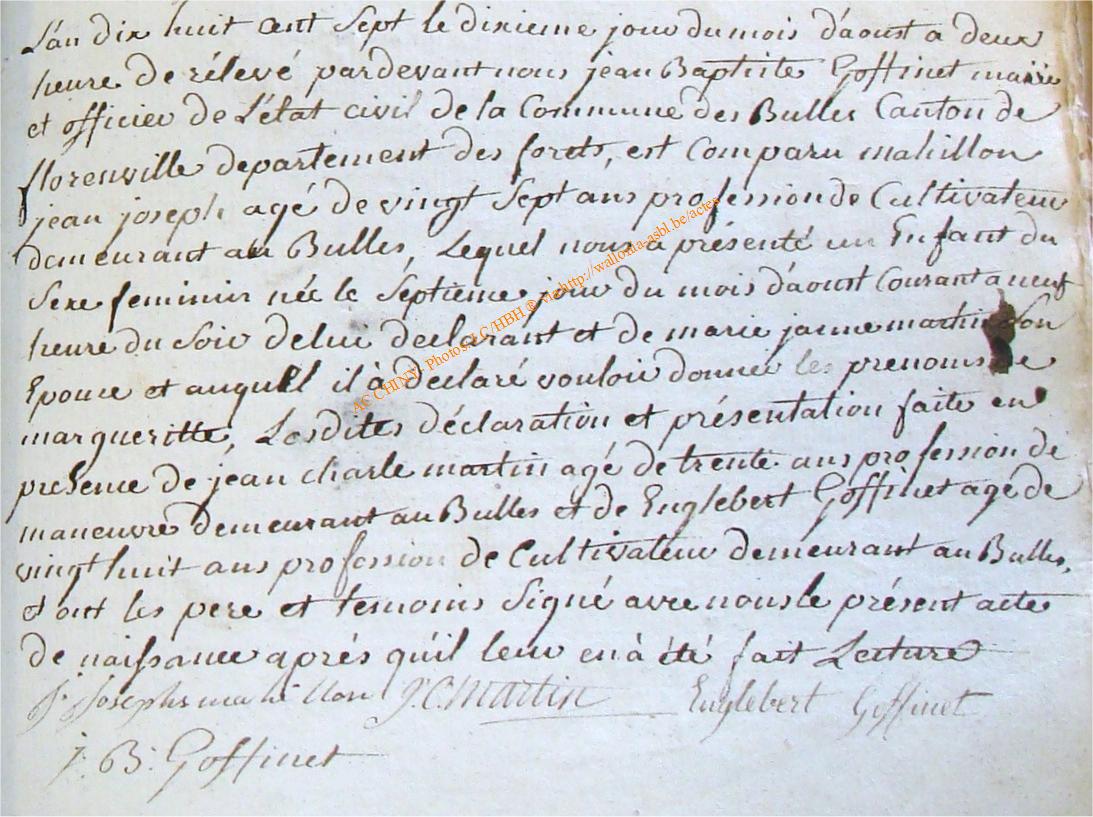 L'an dix huit cent Sept le dixieme jour du mois d'aoust a deux
heure de rélevé pardevant nous jean Baptiste Goffinet maiïe
et officier de L'état civil de la Commune des Bulles Canton de
florenville departement des forets, est Comparu mahillon
jean joseph agé de vingt Sept ans profession de Cultivateur
demeurant au Bulles, Lequel nous a présenté un Enfant du
Sexe feminin née le Septieme jour du mois d'aoust Courant a neuf
heure du Soir de lui declarant et de marie janne martin Son
Epouse et auquel il à declaré vouloir donner les prenoms de
margueritte, Lesdites déclaration et présentation faite en
presence de jéan charle martin agé de trente ans profession de
maneuvre demeurant au Bulles et de Englebert Goffinet agé de
vingt huit ans profession de Cultivateur demeurant au Bulles,
et ont les pere et temoins Signé avec nous le présent acte
de naissance aprés qu'il leur en à été fait Lecture
j. joseph mahillon J. C. Martin Englebert Goffinet
j. B. Goffinet
AC CHINY- Photos: LC/HBH ® via http://wallonia-asbl.be/actes